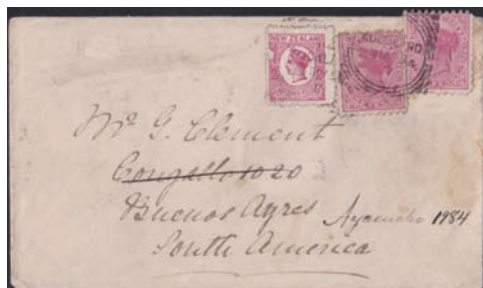 NEW ZEALAND
Mr G. Clement
Cangallo 1020
Buenos Ayres Ayacucho 1984
South America